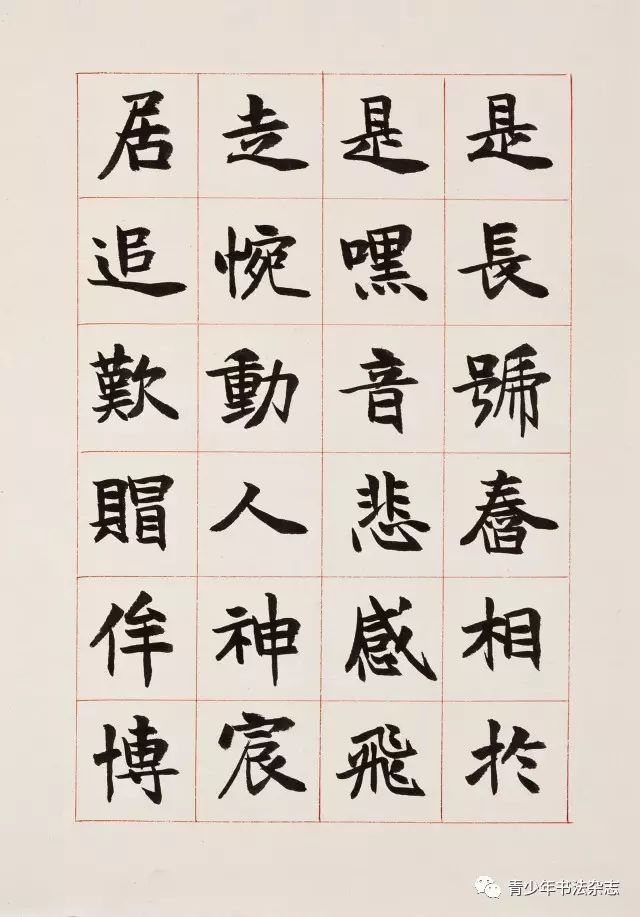 是長號舂相於
是嘿音悲感飛
走惋動人神宸
居追歎賵侔博
青少年书法杂志